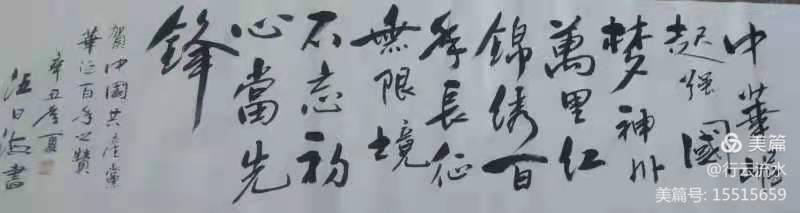 中華
起强國
梦神州
萬里红
錦绣百
年長征
無限境
不忘初
心當先
鋒
賀中國共產黨
華诞百年之贊
辛丑夏
汪日書
美篇
@行云流水
美篇号: 15515659